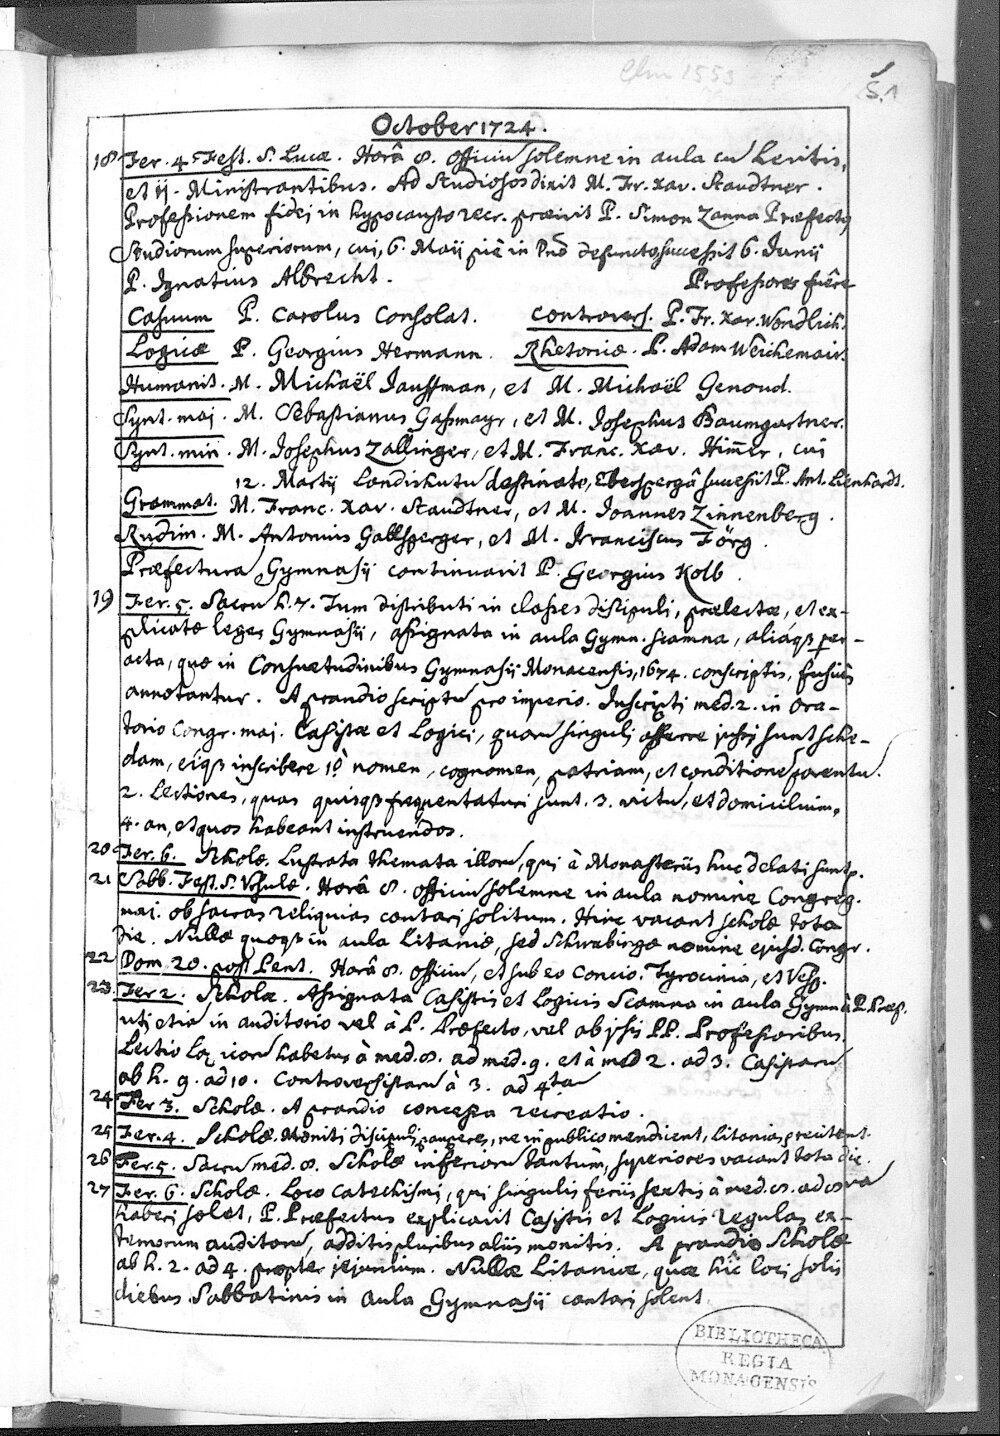 Clm 1553
S. 1
October 1724.
18 Fer. 4. Fest. S. Lucæ. Horâ 8. officiū solemne in aula cū Levitis,
et ij. Ministrantibus. Ad Studiosos dixit M. Fr. Xav. Staudtner.
Professionem fidei in hypocausto recr. præivit P. Simon Zanna Præfectꝰ
Studiorum superiorum, cui, 6. Maij piè in Dnō defuncto, successit 6. Junij
P. Ignatius Albrecht. Professores fuêre
Casuum P. Carolus Consolat. Controvers. P. Fr. Xav. Wendlich.
Logicæ P. Georgius Hermann. Rhetoricæ. P. Adam Weichemair.
Humanit. M. Michaël Jausfman, et M. Michaël Genoud.
Synt. maj. M. Sebastianus Gassmayr, et M. Josephus Baumgartner.
Synt. min. M. Josephus Zallinger, et M. Franc. Xav. Him̄er, cui
12. Martij Landishutū destinato, Eberspergâ successit P. Ant. Lienhardt.
Grammat. M. Franc. Xav. Staudtner, et M. Joannes Zinnenberg.
Rudim. M. Antonius Gallsperger, et M. Franciscus Förg.
Præfecturā Gymnasij continuavit P. Georgius Kolb.
19 Fer. 5. Sacrū h. 7. Tum distributi in classes discipuli, prælectæ, et ex-
plicatæ leges Gymnasij, assignata in aula Gymn. scamna, aliáqꝫ per-
acta, quæ in Consuetudinibus Gymnasij Monacensis, 1674. conscriptis, fusiùs
annotantur. A prandio scriptū pro imperio. Inscripti med. 2. in Ora-
torio Congr. maj. Casistæ et Logici, quorū singuli afferre jussi sunt sche-
dam, eiqꝫ inscribere 1ò nomen, cognomen, patriam, et conditionē parentū.
2. Lectiones, quas quisqꝫ frequentaturi sunt. 3. victū, et domicilium,
4. an, et quos habeant instruendos.
20 Fer. 6. Scholæ. Lustrata themata illorū, qui à Monasteriis huc delati sunt.
21 Sabb. Fest. S. Ursulæ. Horâ 8. officiū solemne in aula nomine Congreg.
maj. ob sacras reliquias cantari solitum. Hinc vacant scholæ totâ
die. Nullæ quoqꝫ in aula Litaniæ, sed Schwabingæ nomine ejusd. Congr.
22 Dom. 20. post Pent. Horâ 8. officiū, et sub eo Concio. Tyrocinia, et Vesp.
23. Fer. 2. Scholæ. Assignata Casistis et Logicis Scamna in aula Gymn. à P. Præf.
uti etiā in auditorio vel à P. Præfecto, vel ab ipsis PP. Professoribus.
Lectio Logicorū habetur à med. 8. ad med. 9. et à med 2. ad 3. Casistarū
ab h. 9. ad 10. Controversistarū à 3. ad 4tam
24 Fer. 3. Scholæ. A prandio concessa recreatio.
25 Fer. 4. Scholæ. Moniti discipuli pauperes, ne in publico mendicent, Litanias recitent.
26 Fer. 5. Sacrū med. 8. Scholæ inferiorū tantùm, superiores vacant totâ die.
27 Fer. 6. Scholæ. Loco Catechismi, qui singulis feriis sextis à med. 8. ad 8va
haberi solet, P. Præfectus explicavit Casistis et Logicis regulas ex-
ternorum auditorū, additis pluribus aliis monitis. A prandio Scholæ
ab h. 2. ad 4. propter jejunium. Nullæ Litaniæ, quæ hîc loci solis
diebus Sabbatinis in Aula Gymnasij cantari solent.
BIBLIOTHECA
REGIA
MONACENSIS